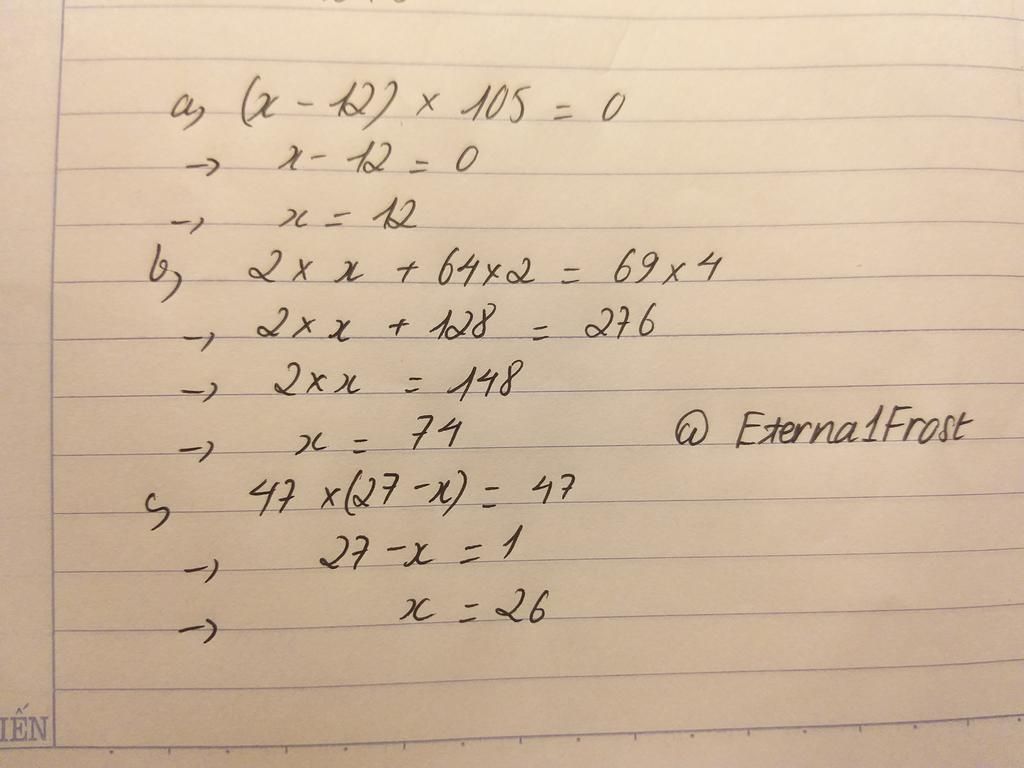 a, (x - 12) × 105 = 0
→ x - 12 = 0
→ x = 12
b, 2 × x + 64 × 2 = 69 × 4
→ 2 × x + 128 = 276
→ 2 × x = 148
→ x = 74
@ Eterna1Frost
c, 47 × (27 - x) = 47
→ 27 - x = 1
→ x = 26
IẾN